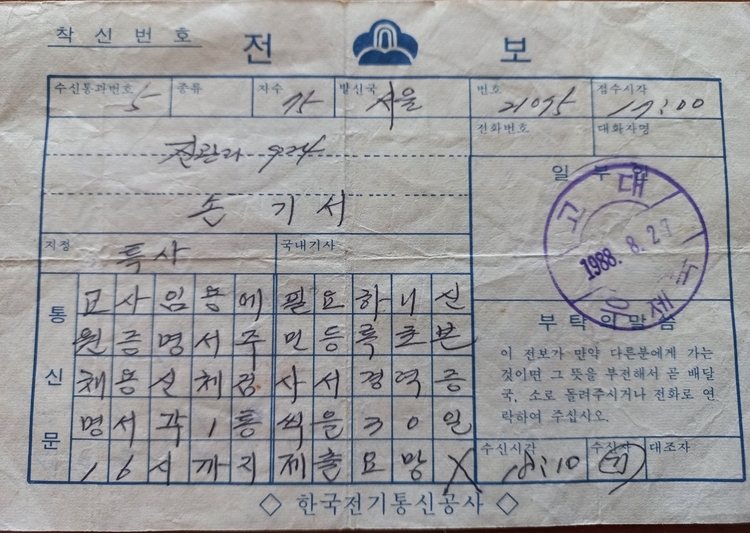 착신번호 전 보
수신통과번호 5 종류 자수 75 발신국 서울 번호 21075 접수시각 17:00
전화번호 대화자명
924
손 기 서
일 부 인
고 대 우 체 국
1988. 8. 27
지정 특사 국내기사
통신문
교사임용에 필요하니 신
원증명서 주민등록초본
채용신체검사서 경력증
명서 각 1통씩을 30일
16시까지 제출요망
부탁의 말씀
이 전보가 만약 다른분에게 가는
것이면 그 뜻을 부전해서 곧 배달
국, 소로 돌려주시거나 전화로 연
락하여 주십시오.
수신시각 18:10 수신자 대조자
◇ 한국전기통신공사 ◇